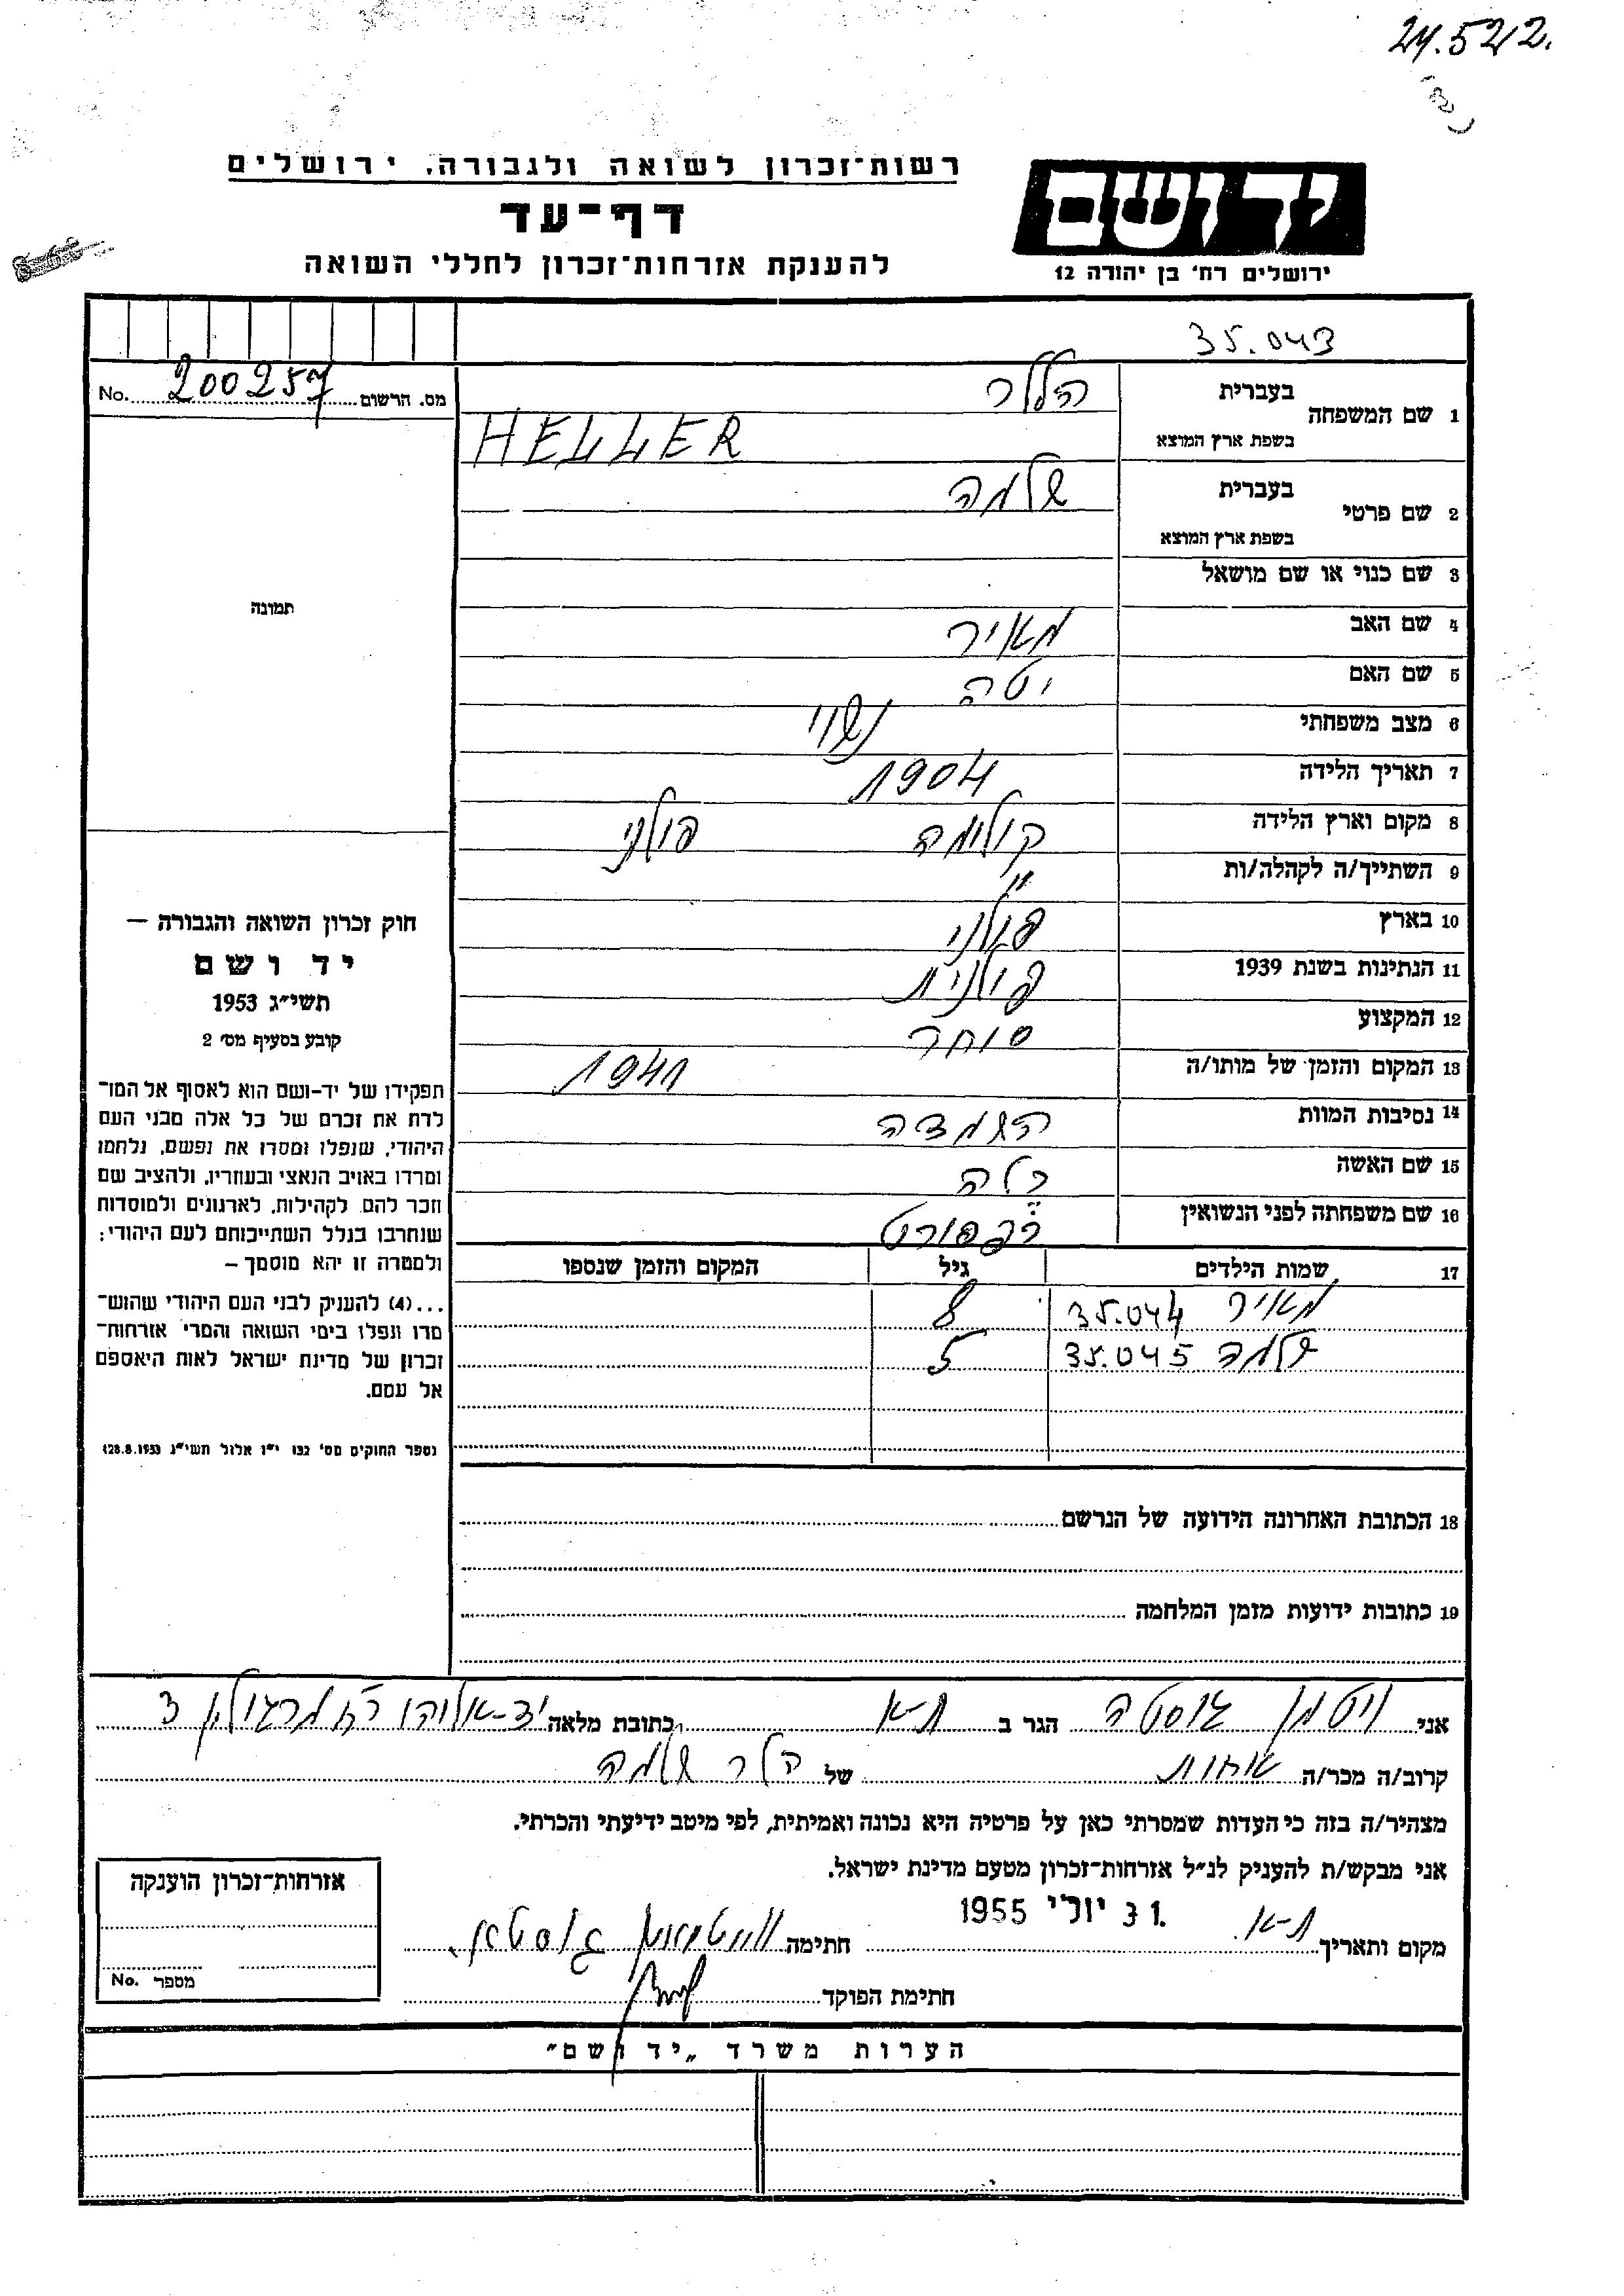 24.522.
רשות־זכרון לשואה ולגבורה, ירושלים
דף־עד
להענקת אזרחות־זכרון לחללי השואה
יד ושם
ירושלים רח' בן יהודה 12
35.043
מס. הרשום 200257 No.
1 שם המשפחה בעברית הלר
בשפת ארץ המוצא HELLER
2 שם פרטי בעברית שלמה
בשפת ארץ המוצא
3 שם כנוי או שם מושאל
4 שם האב מאיר
5 שם האם יטה
6 מצב משפחתי נשוי
7 תאריך הלידה 1904
8 מקום וארץ הלידה קולומה פולני
9 השתייך/ה לקהלה/ות "
10 בארץ פולני
11 הנתינות בשנת 1939 פולנית
12 המקצוע סוחר
13 המקום והזמן של מותו/ה 1941
14 נסיבות המוות השמדה
15 שם האשה
16 שם משפחתה לפני הנשואין רפפורט
17 שמות הילדים גיל המקום והזמן שנספו
מאיר 35.044 8
שלמה 35.045 5
תמונה
חוק זכרון השואה והגבורה —
יד ושם
תשי״ג 1953
קובע בסעיף מס' 2
תפקידו של יד-ושם הוא לאסוף אל המו־
לדת את זכרם של כל אלה מבני העם
היהודי, שנפלו ומסרו את נפשם, נלחמו
ומרדו באויב הנאצי ובעוזריו, ולהציב שם
וזכר להם, לקהילות, לארגונים ולמוסדות
שנחרבו בגלל השתייכותם לעם היהודי;
ולמטרה זו יהא מוסמך —
...(4) להעניק לבני העם היהודי שהוש־
מדו ונפלו בימי השואה והמרי אזרחות־
זכרון של מדינת ישראל לאות היאספם
אל עמם.
(ספר החוקים מס' 132 י״ז אלול תשי״ג 28.8.1953)
18 הכתובת האחרונה הידועה של הנרשם
19 כתובות ידועות מזמן המלחמה
אני ויטמן גוסטה הגר ב ת-א כתובת מלאה יד-אליהו רח מרגולין 3
קרוב/ה מכר/ה אחות של הלר שלמה
מצהיר/ה בזה כי העדות שמסרתי כאן על פרטיה היא נכונה ואמיתית, לפי מיטב ידיעתי והכרתי.
אני מבקש/ת להעניק לנ״ל אזרחות-זכרון מטעם מדינת ישראל.
מקום ותאריך ת-א. 31 יולי 1955 חתימה
חתימת הפוקד
אזרחות־זכרון הוענקה
מספר No.
הערות משרד „יד ושם״